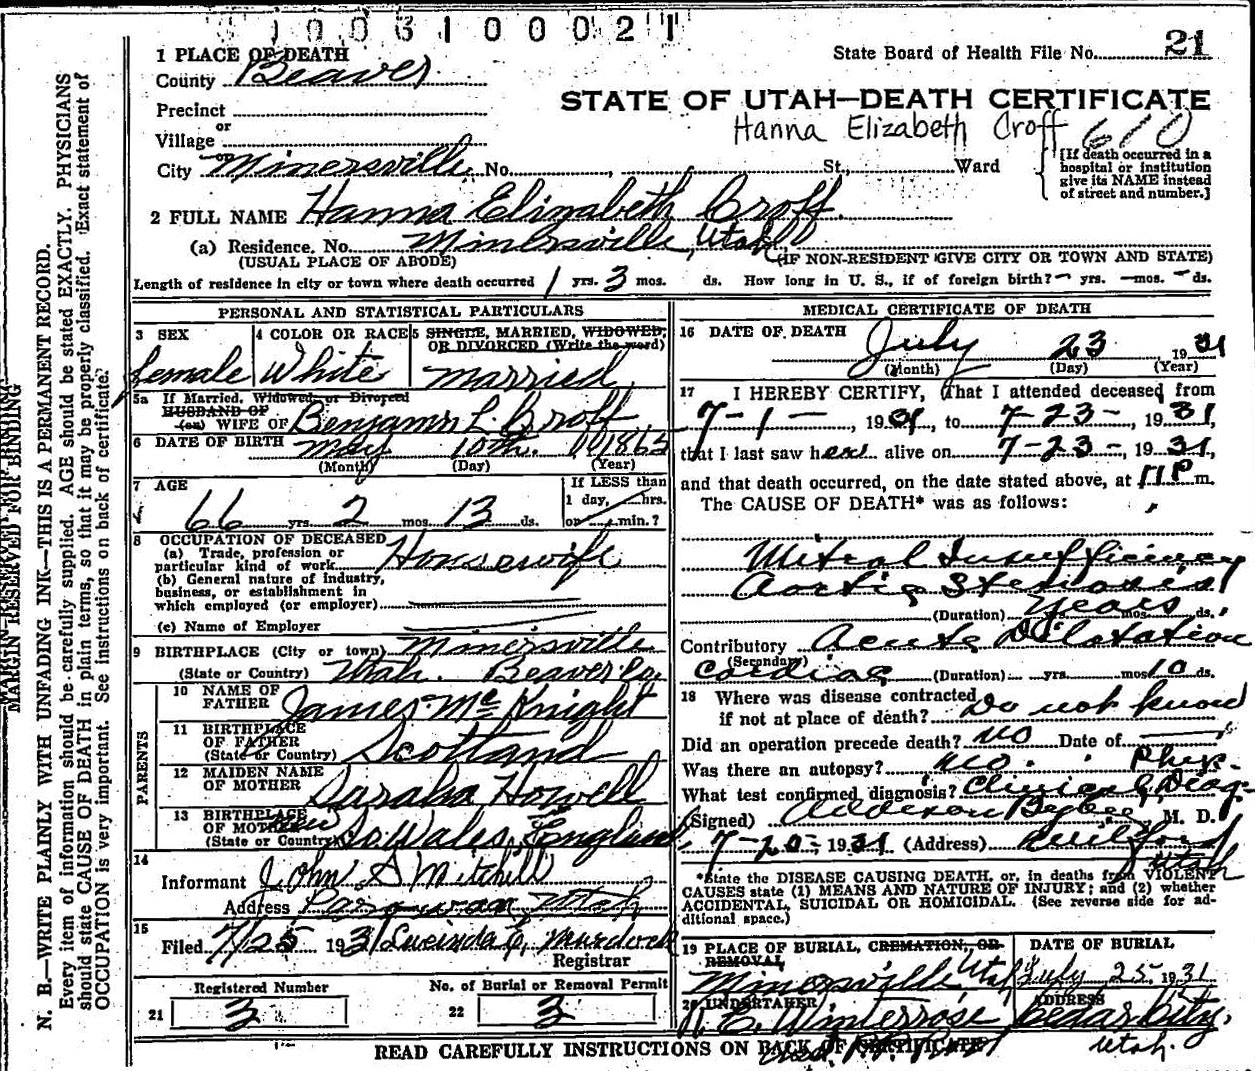 1003100021
1 PLACE OF DEATH
County Beaver
State Board of Health File No. 21
Precinct
STATE OF UTAH—DEATH CERTIFICATE
Hanna Elizabeth Croff 610
or
Village
or
City Minersville No. , St., Ward
[If death occurred in a
hospital or institution
give its NAME instead
of street and number.]
2 FULL NAME Hanna Elizabeth Croff.
(a) Residence. No. Minersville, Utah
(USUAL PLACE OF ABODE) (IF NON-RESIDENT GIVE CITY OR TOWN AND STATE)
Length of residence in city or town where death occurred 1 yrs. 3 mos. ds. How long in U. S., if of foreign birth? — yrs. — mos. — ds.
PERSONAL AND STATISTICAL PARTICULARS
3 SEX
female
4 COLOR OR RACE
White
5 SINGLE, MARRIED, WIDOWED,
OR DIVORCED (Write the word)
married
5a If Married, Widowed, or Divorced
HUSBAND OF
(or) WIFE OF Benjamn L. Croff
6 DATE OF BIRTH May 10th. 1865
(Month) (Day) (Year)
7 AGE
66 yrs. 2 mos. 13 ds.
If LESS than
1 day, hrs.
or min.?
8 OCCUPATION OF DECEASED
(a) Trade, profession or
particular kind of work Housewife
(b) General nature of industry,
business, or establishment in
which employed (or employer)
(c) Name of Employer
9 BIRTHPLACE (City or town) Minersville
(State or Country) Utah. Beaver Co.
PARENTS
10 NAME OF
FATHER James McKnight
11 BIRTHPLACE
OF FATHER
(State or Country) Scotland
12 MAIDEN NAME
OF MOTHER Sarah Howell
13 BIRTHPLACE
OF MOTHER
(State or Country) So Wales, England
14
Informant John S Mitchell
Address Parowan, Utah
15
Filed 7/25 1931 Lucinda E. Murdock
Registrar
Registered Number
21 3
No. of Burial or Removal Permit
22 3
MEDICAL CERTIFICATE OF DEATH
16 DATE OF DEATH
July 23 1931
(Month) (Day) (Year)
17 I HEREBY CERTIFY, That I attended deceased from
7-1-, 1931, to 7-23-, 1931,
that I last saw her alive on 7-23-, 1931,
and that death occurred, on the date stated above, at 11P m.
The CAUSE OF DEATH* was as follows:
Mitral Insufficiency
Aortic Stenosis
(Duration) years mos. ds.
Contributory Acute Dilatation
(Secondary)
Cardiac (Duration) yrs. mos 10 ds.
18 Where was disease contracted
if not at place of death? Do not know
Did an operation precede death? No Date of
Was there an autopsy? No. Phys.
What test confirmed diagnosis? Clinical Diag.
(Signed) Addison Bybee, M. D.
7-20-, 1931 (Address) Milford
Utah
*State the DISEASE CAUSING DEATH, or, in deaths from VIOLENT
CAUSES state (1) MEANS AND NATURE OF INJURY; and (2) whether
ACCIDENTAL, SUICIDAL OR HOMICIDAL. (See reverse side for ad-
ditional space.)
19 PLACE OF BURIAL, CREMATION, OR
REMOVAL
Minersville Utah
DATE OF BURIAL
July 25, 1931
20 UNDERTAKER
N. E. Winterrose
ADDRESS
Cedar City,
Utah.
READ CAREFULLY INSTRUCTIONS ON BACK OF CERTIFICATE
MARGIN RESERVED FOR BINDING
N. B.—WRITE PLAINLY WITH UNFADING INK—THIS IS A PERMANENT RECORD.
Every item of information should be carefully supplied. AGE should be stated EXACTLY. PHYSICIANS
should state CAUSE OF DEATH in plain terms, so that it may be properly classified. Exact statement of
OCCUPATION is very important. See instructions on back of certificate.